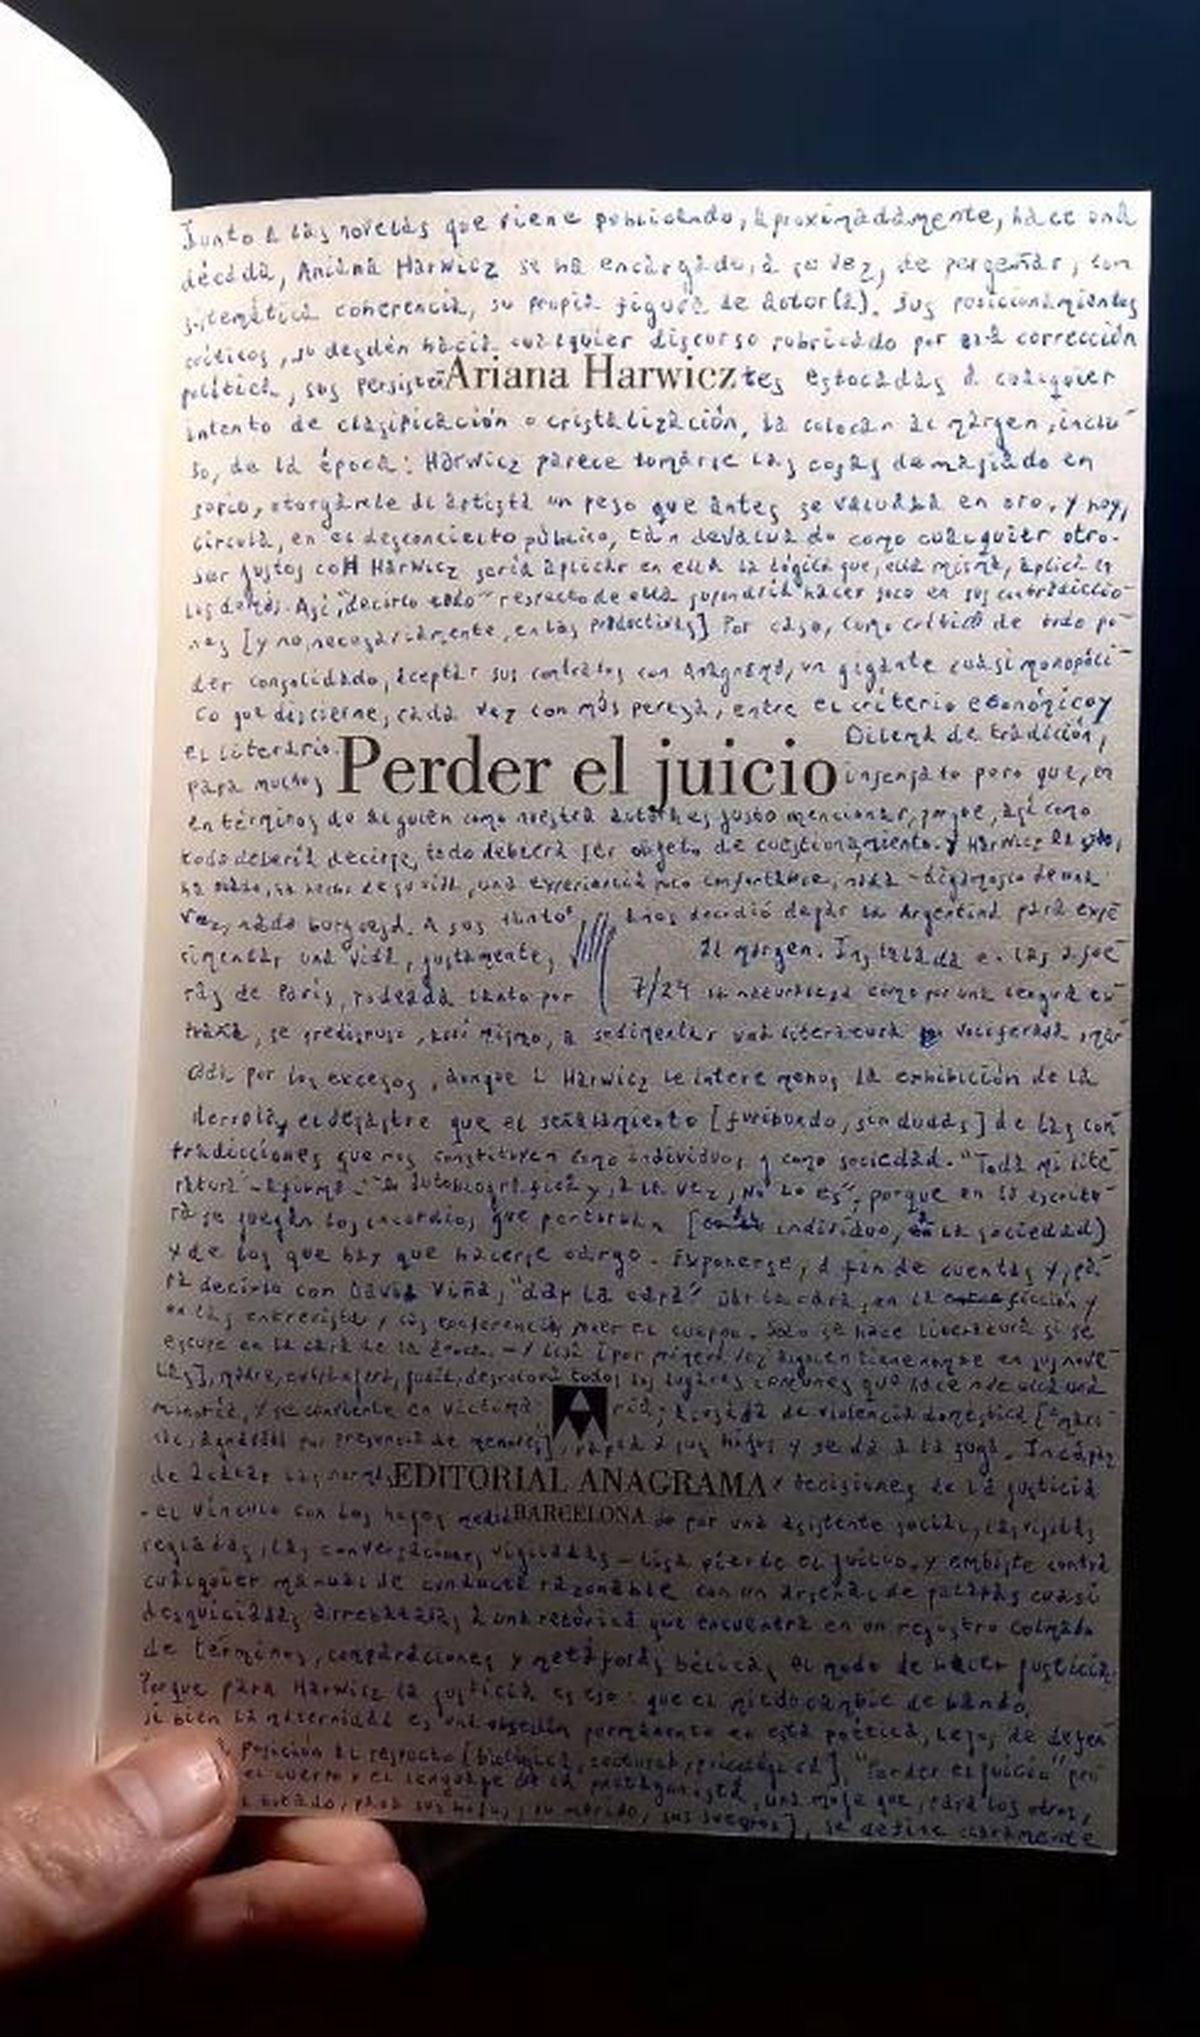 Junto a las novelas que viene publicando, aproximadamente, hace una
década, Ariana Harwicz se ha encargado, a su vez, de pergeñar, con
sistemática coherencia, su propia figura de autor(a). Sus posicionamientos
críticos, su desdén hacia cualquier discurso rubricado por una corrección
política, sus persisten
Ariana Harwicz
tes estocadas a cualquier
intento de clasificación o cristalización, la colocan al margen, inclu-
so, de la época: Harwicz parece tomarse las cosas demasiado en
serio, otorgárele al artista un peso que antes se valuaba en oro, y hoy,
circula, en el desconcierto público, tan devaluado como cualquier otro.
Ser justos con Harwicz sería aplicar en ella la lógica que, ella misma, aplica en
los demás. Así, "decirlo todo" respecto de ella supondría hacer foco en sus contradiccio-
nes [y no, necesariamente, en las productivas] Por caso, como crítica de todo po-
der consolidado, aceptar sus contratos con Anagrama, un gigante cuasi monopóli-
co que discierne, cada vez con más pereza, entre el criterio económico y
el literario.
Dilema de tradición,
para muchos
Perder el juicio
insensato pero que, en
en términos de alguien como nuestra autora es justo mencionar, porque, así como
todo debería decirse, todo debería ser objeto de cuestionamiento. y Harwicz
ha hecho de su vida, una experiencia poco confortable, nada - digámoslo de una
vez, nada burguesa. A sus tantos
años decidió dejar la Argentina para expe-
rimentar una vida, justamente,
al margen. Instalada en las afue-
ras de París, rodeada tanto por
7/24
la naturaleza como por una lengua ex-
traña, se predispuso, así mismo, a sedimentar una literatura vociferada,
por los excesos, aunque a Harwicz le interese menos la exhibición de la
derrota y el desastre que el señalamiento [furibundo, sin dudas] de las con-
tradicciones que nos constituyen como individuos y como sociedad. "Toda mi lite-
ratura - afirma - es autobiográfica y, a la vez, no lo es", porque en la escritu-
ra se juegan los incordios que perturban [ individuo, en la sociedad)
y de los que hay que hacerse cargo. Exponerse, a fin de cuentas y, pa-
ra decirlo con David Viña, "dar la cara". Dar la cara, en la ficción y
en las entrevistas y las conferencias, poner el cuerpo. Solo se hace literatura si se
escupe en la cara de la época. - Y Lisa [por primera vez alguien tiene nombre en sus nove-
las], madre, extranjera, judía, desmorona todos los lugares comunes que hace de ella una
y se convierte en victimaria; acusada de violencia doméstica
agravada por presencia de menores], rapta a sus hijos y se da a la fuga. Incapaz
de acatar las normas
EDITORIAL ANAGRAMA
y decisiones de la justicia
- el vínculo con los hijos
BARCELONA
por una asistente social, las visitas
regladas, las conversaciones vigiladas - Lisa pierde el juicio. Y embiste contra
cualquier manual de conducta razonable con un arsenal de palabras cuasi
desquiciadas arrebatadas a una retórica que encuentra en un registro colmado
de términos, comparaciones y metáforas bélicas el modo de hacer justicia.
Porque para Harwicz la justicia es eso: que el miedo cambie de bando.
Si bien la maternidad es una obsesión permanente en esta poética, lejos de
posición al respecto [biológica, cultural, psicológica], "Perder el juicio"
el cuerpo y el lenguaje de la protagonista, una mujer que, para los otros,
para sus hijos, su marido, sus suegros], se define claramente